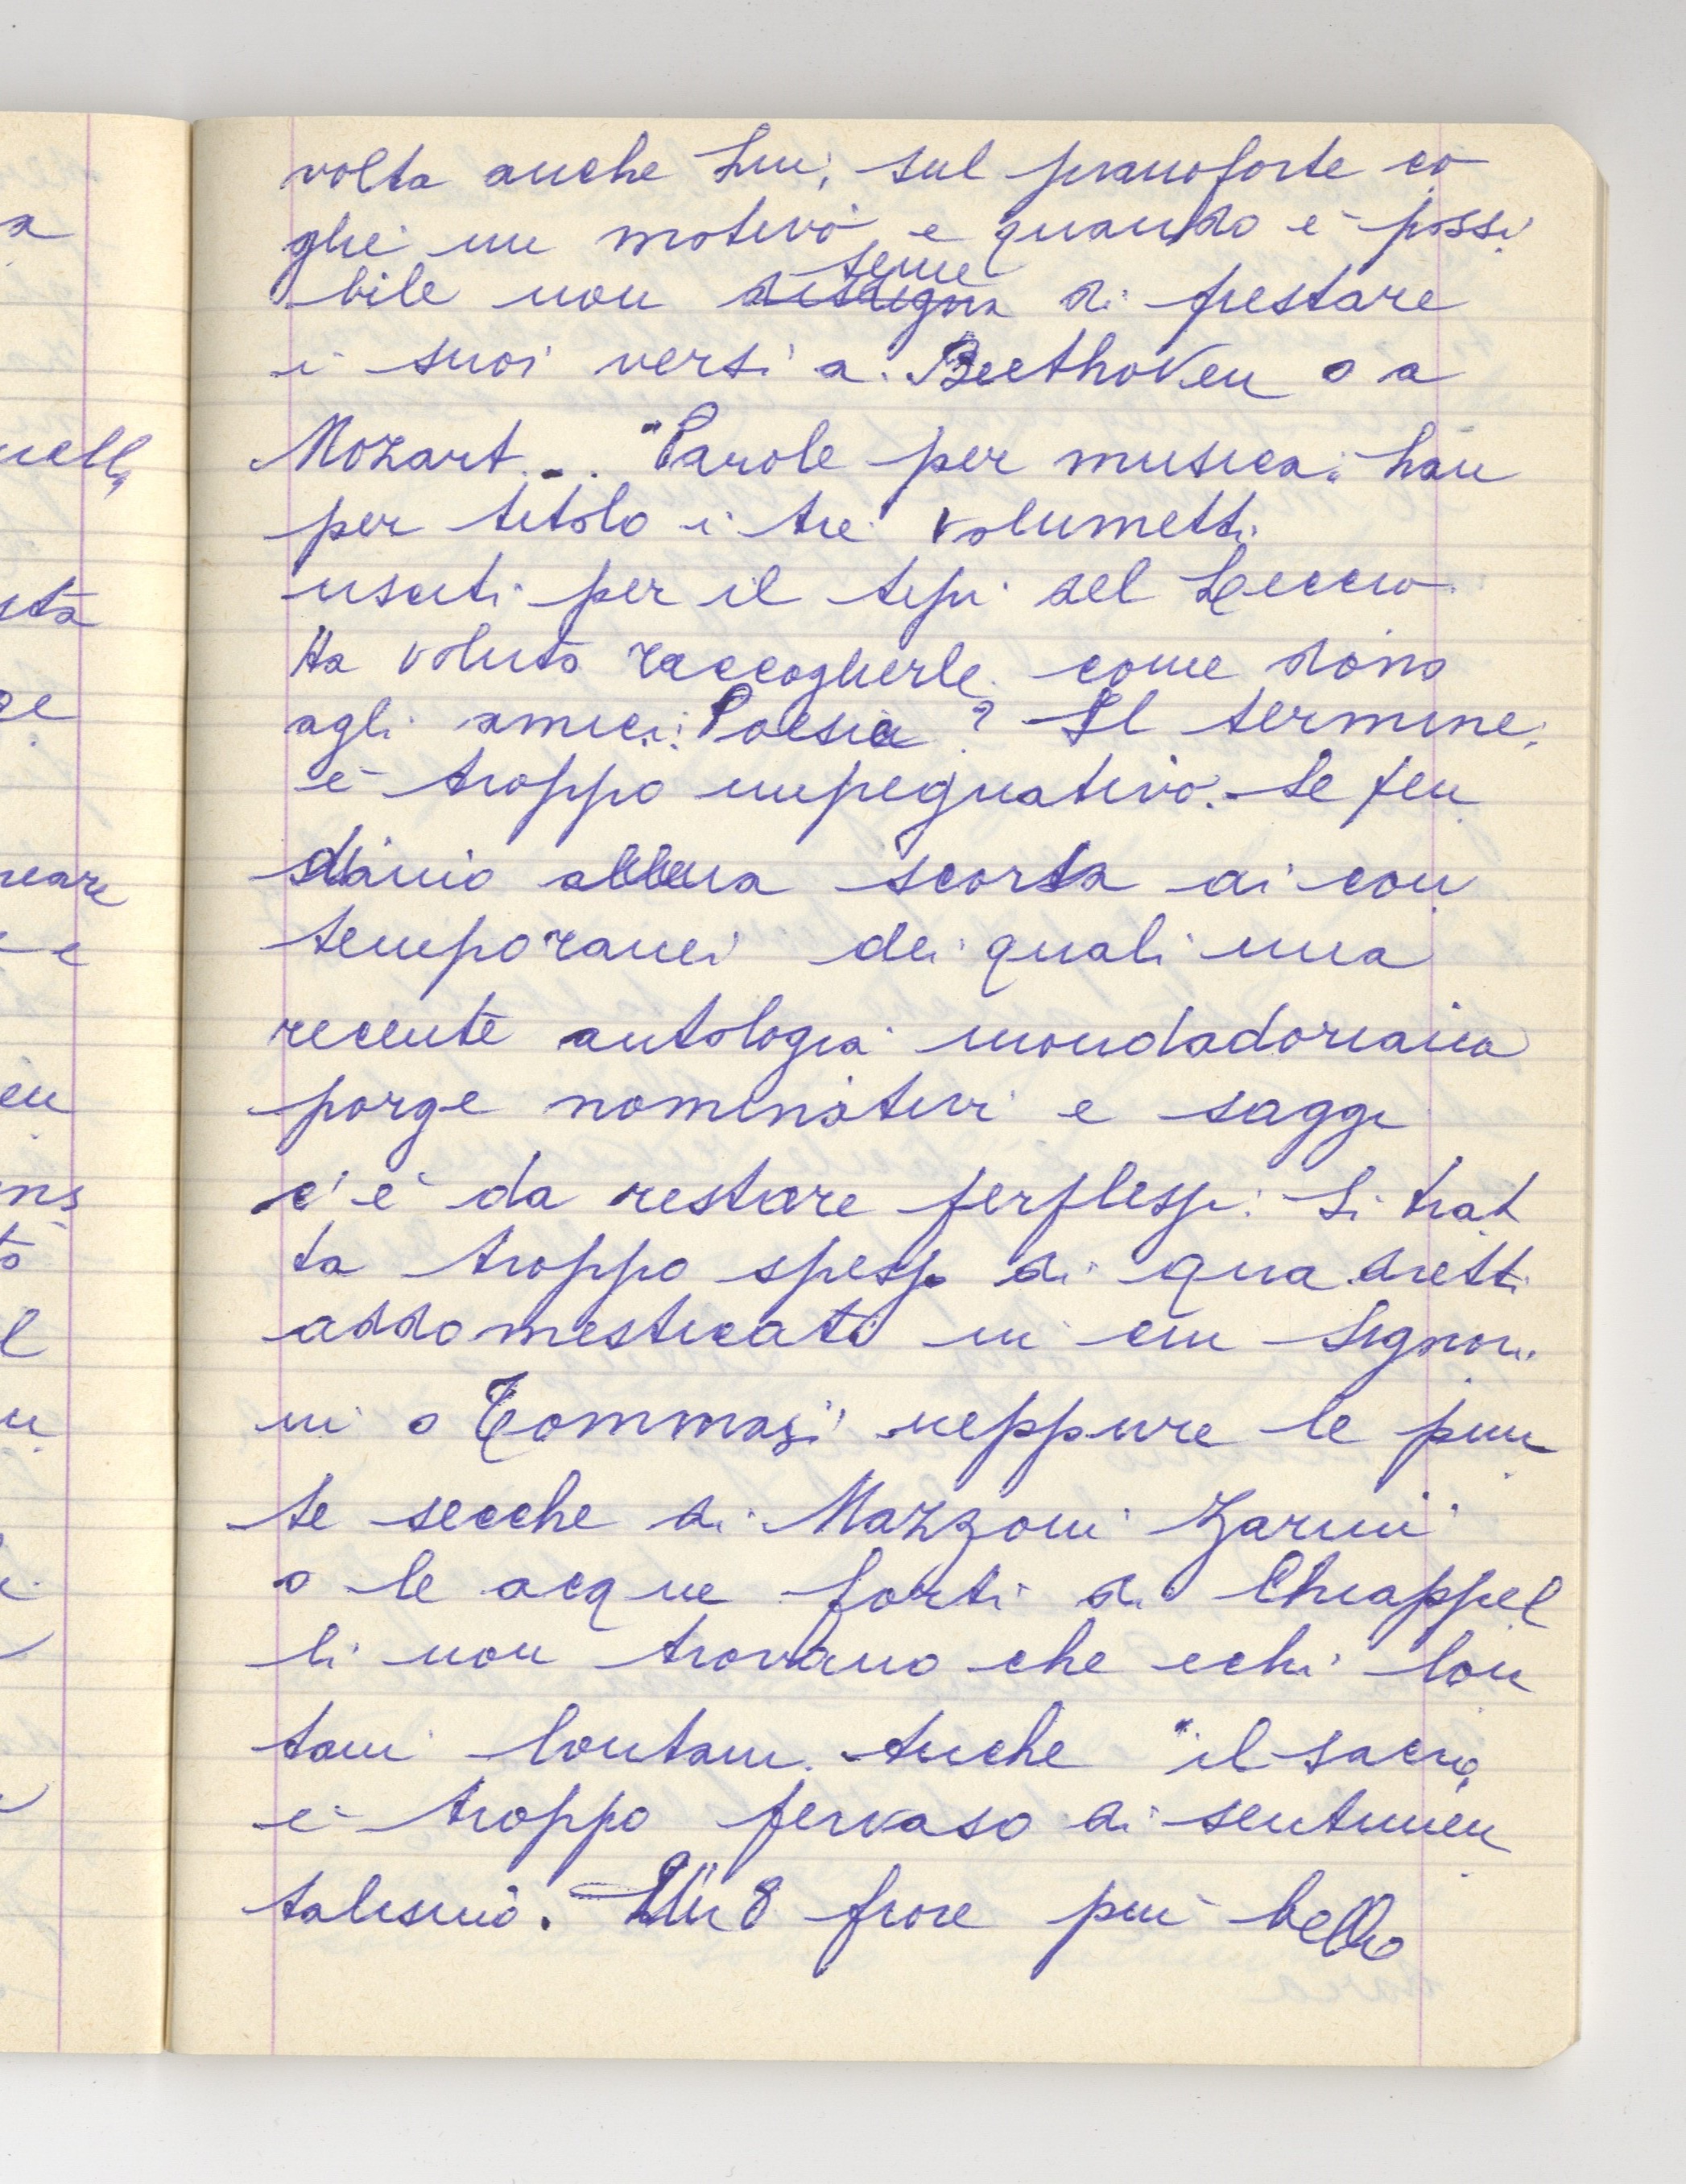 volta anche Lui, sul pianoforte co
glie un motivo e quando è possi
bile non teme di prestare
i suoi versi a Beethoven o a
Mozart... "Parole per musica" han
per titolo i tre volumetti
usciti per il tipi del Leccio.
Ha voluto raccoglierle come dono
agli amici: Poesia? Il termine,
è troppo impegnativo. Se pen
siamo alla scorta ai con
temporanei dei quali una
recente antologia mondadoriana
porge nominativi e saggi
c'è da restare perplessi: Si trat
ta troppo spesso di quadretti
addomesticati in cui Signori
ni o Tommasi neppure le pun
te secche di Mazzoni Zarini
o le acque forti di Chiappel
li non trovano che echi lon
tani lontani. Anche "il sacro"
è troppo pervaso di sentimen
talismo. fiore più bello
a
uella
stà
ge
neare
e
en
ns
tò
l
u